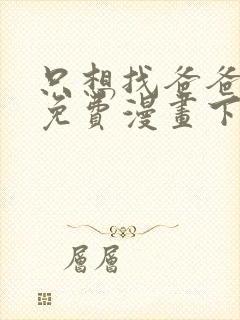 只想找爸爸
免費漫畫下
層層